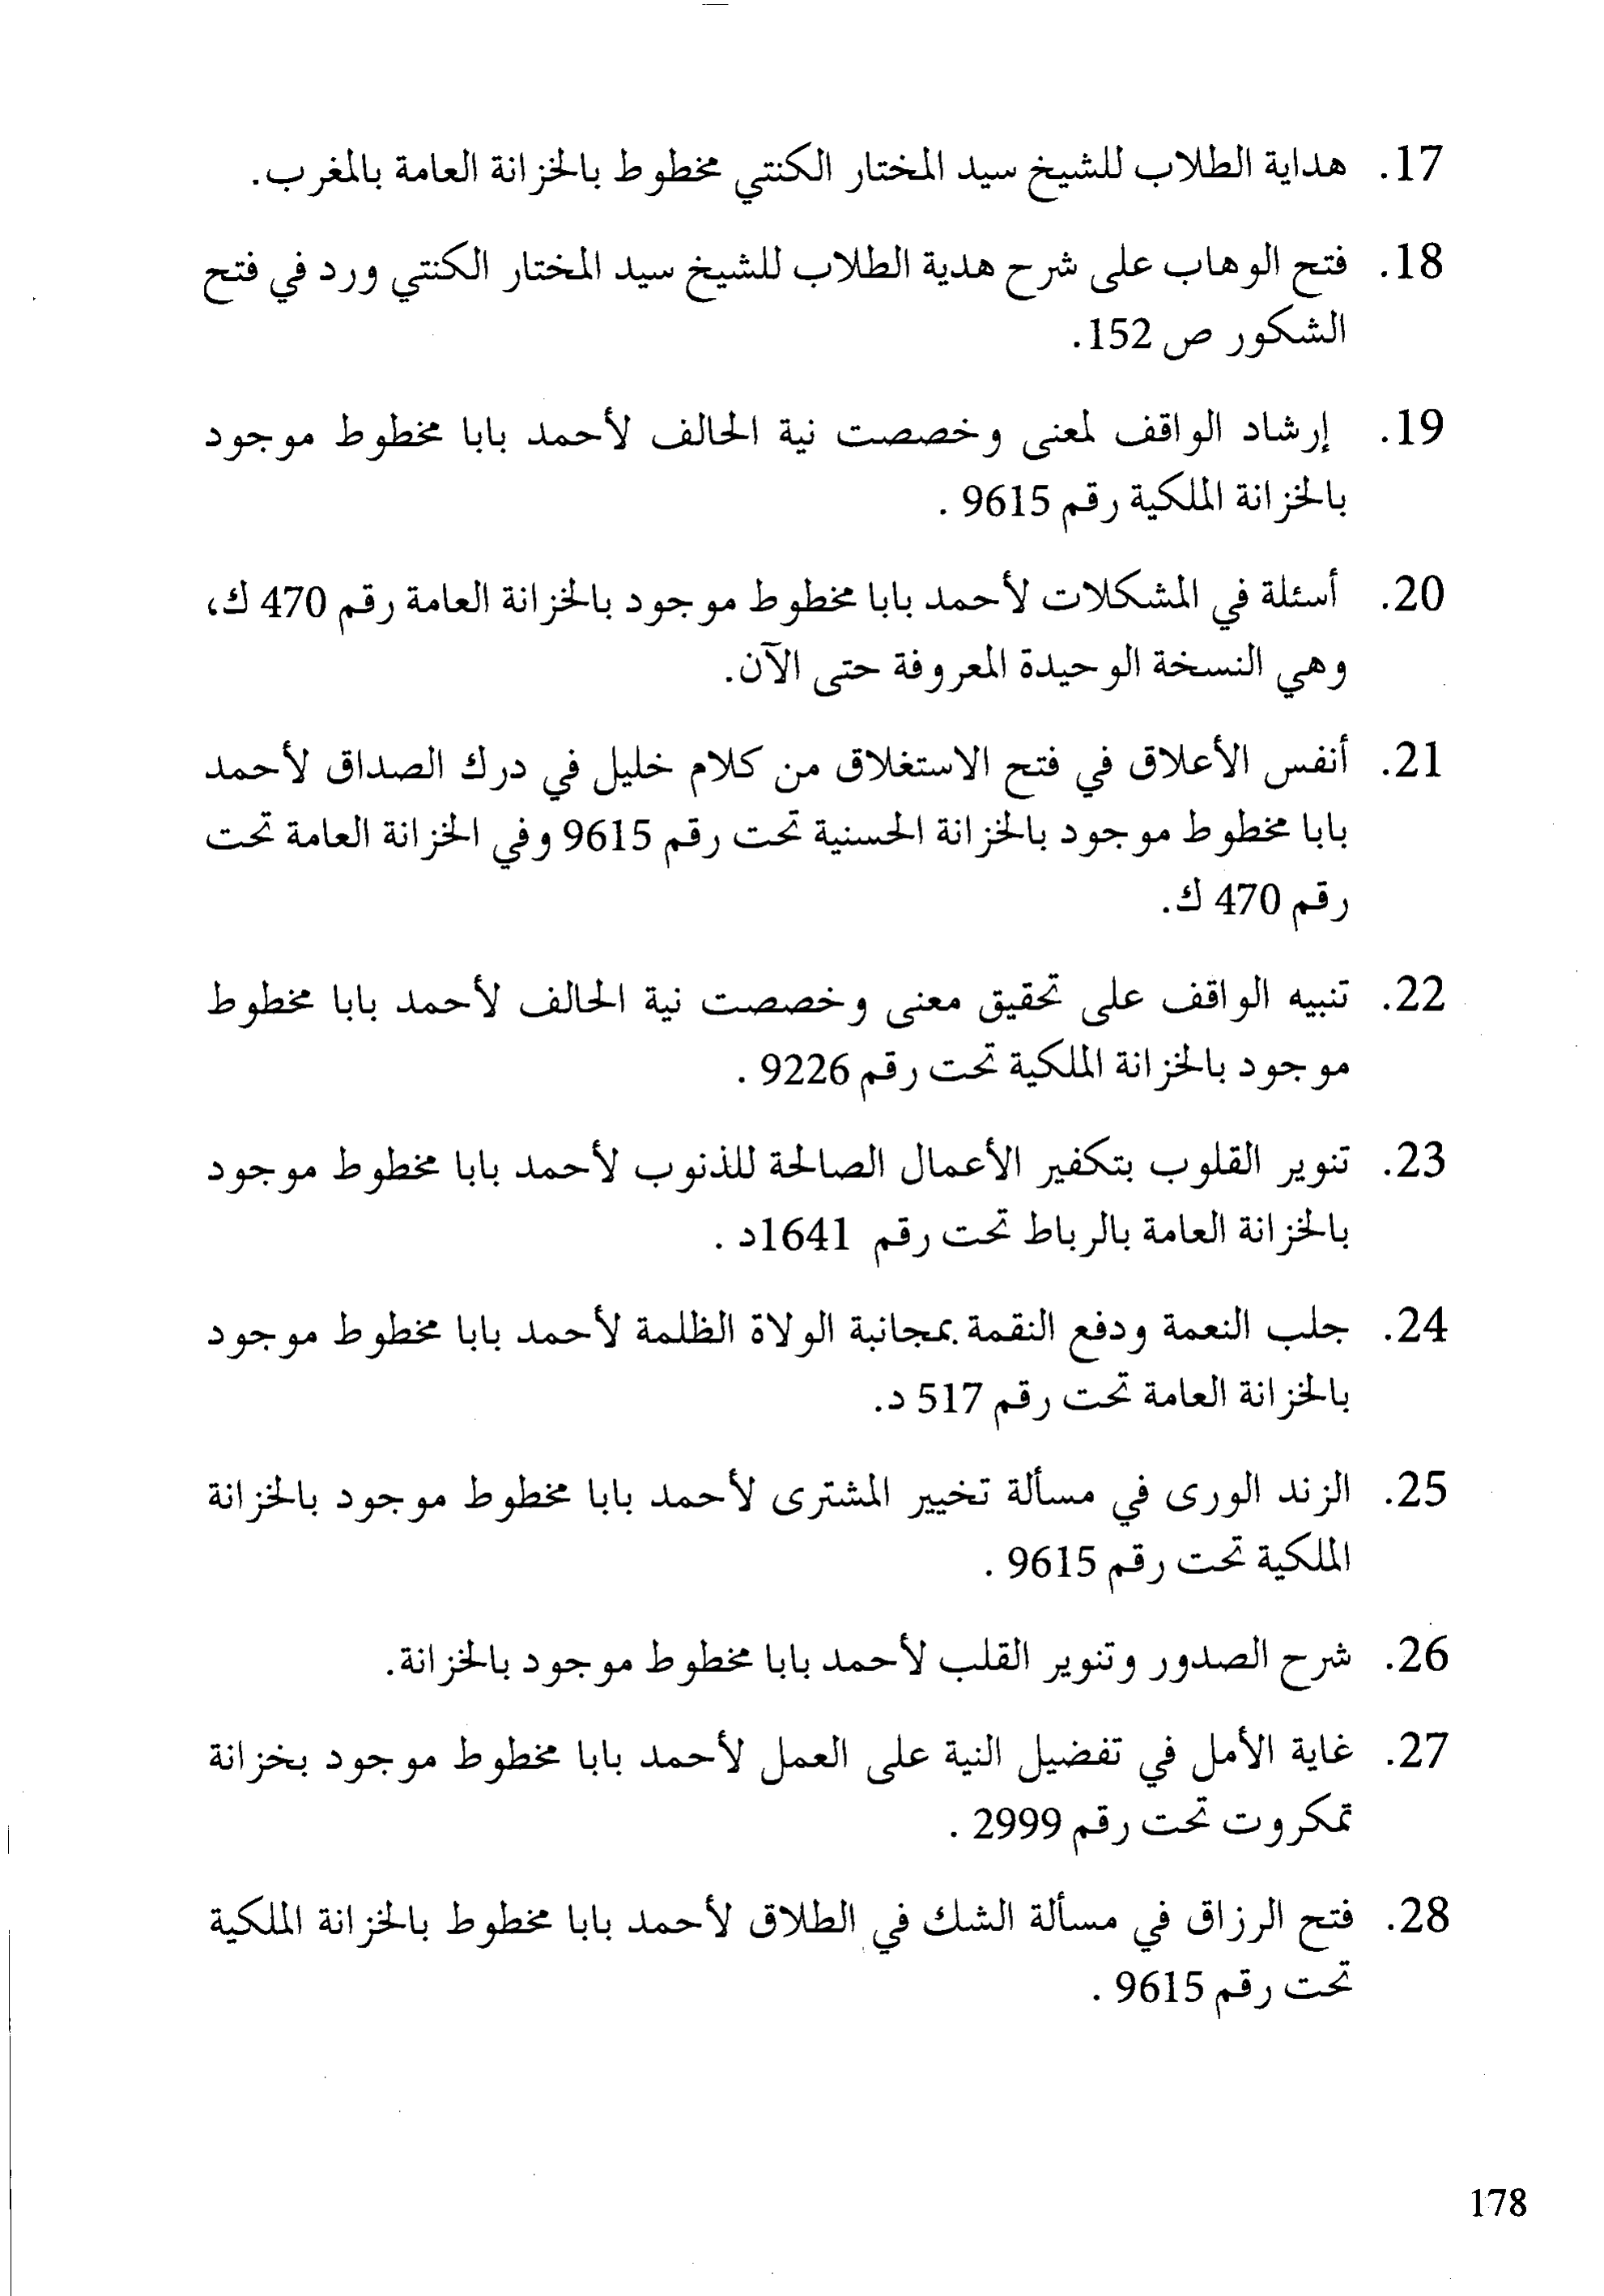 17. هداية الطلاب للشيخ سيد المختار الكنتي مخطوط بالخزانة العامة بالمغرب.
18. فتح الوهاب على شرح هدية الطلاب للشيخ سيد المختار الكنتي ورد في فتح
الشكور ص 152.
19. إرشاد الواقف لمعنى وخصصت نية الحالف لأحمد بابا مخطوط موجود
بالخزانة الملكية رقم 9615 .
20. أسئلة في المشكلات لأحمد بابا مخطوط موجود بالخزانة العامة رقم 470 ك،
وهي النسخة الوحيدة المعروفة حتى الآن.
21. أنفس الأعلاق في فتح الاستغلاق من كلام خليل في درك الصداق لأحمد
بابا مخطوط موجود بالخزانة الحسنية تحت رقم 9615 وفي الخزانة العامة تحت
رقم 470 ك.
22. تنبيه الواقف على تحقيق معنى وخصصت نية الحالف لأحمد بابا مخطوط
موجود بالخزانة الملكية تحت رقم 9226 .
23. تنوير القلوب بتكفير الأعمال الصالحة للذنوب لأحمد بابا مخطوط موجود
بالخزانة العامة بالرباط تحت رقم 1641د .
24. جلب النعمة ودفع النقمة بمجانبة الولاة الظلمة لأحمد بابا مخطوط موجود
بالخزانة العامة تحت رقم 517 د.
25. الزند الورى في مسألة تخيير المشترى لأحمد بابا مخطوط موجود بالخزانة
الملكية تحت رقم 9615 .
26. شرح الصدور وتنوير القلب لأحمد بابا مخطوط موجود بالخزانة.
27. غاية الأمل في تفضيل النية على العمل لأحمد بابا مخطوط موجود بخزانة
تمكروت تحت رقم 2999 .
28. فتح الرزاق في مسألة الشك في الطلاق لأحمد بابا مخطوط بالخزانة الملكية
تحت رقم 9615 .
178